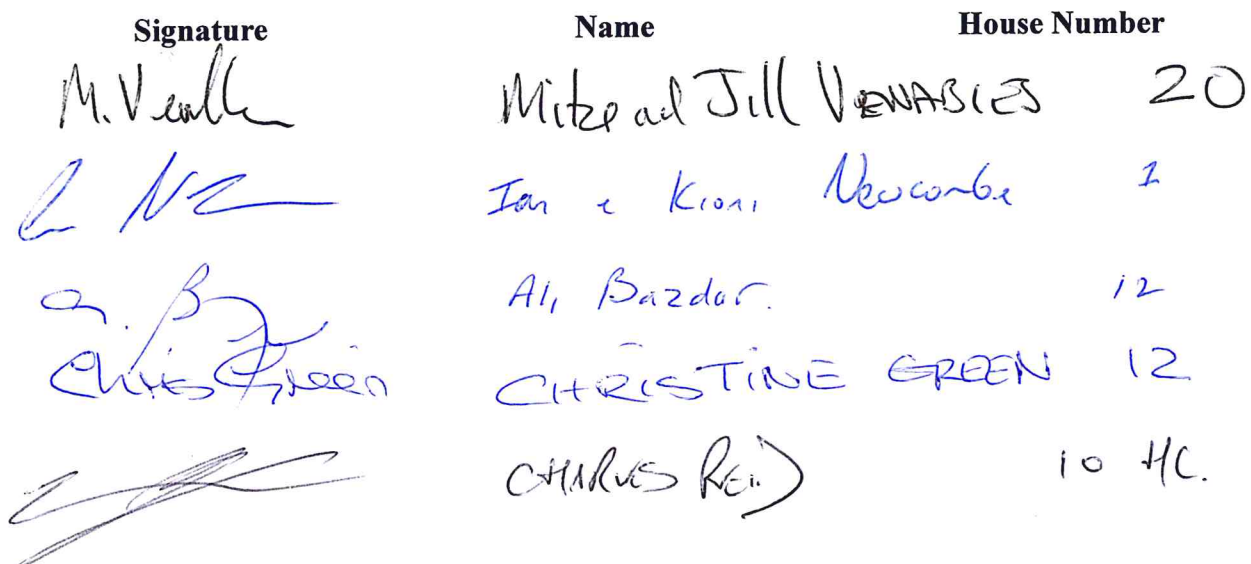 Signature Name House Number
M. Venables Mike and Jill VENABLES 20
Ian & Kioni Newcombe 1
Ali Bazdar. 12
Chris Green CHRISTINE GREEN 12
CHARLES REID 10 HC.